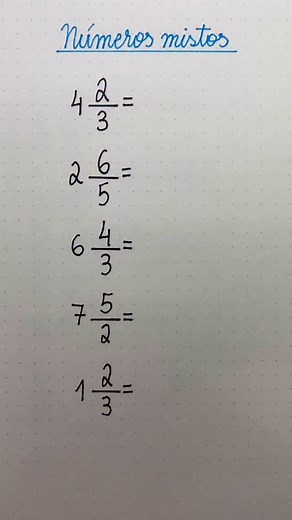 Números mistos
4 2/3 =
2 6/5 =
6 4/3 =
7 5/2 =
1 2/3 =